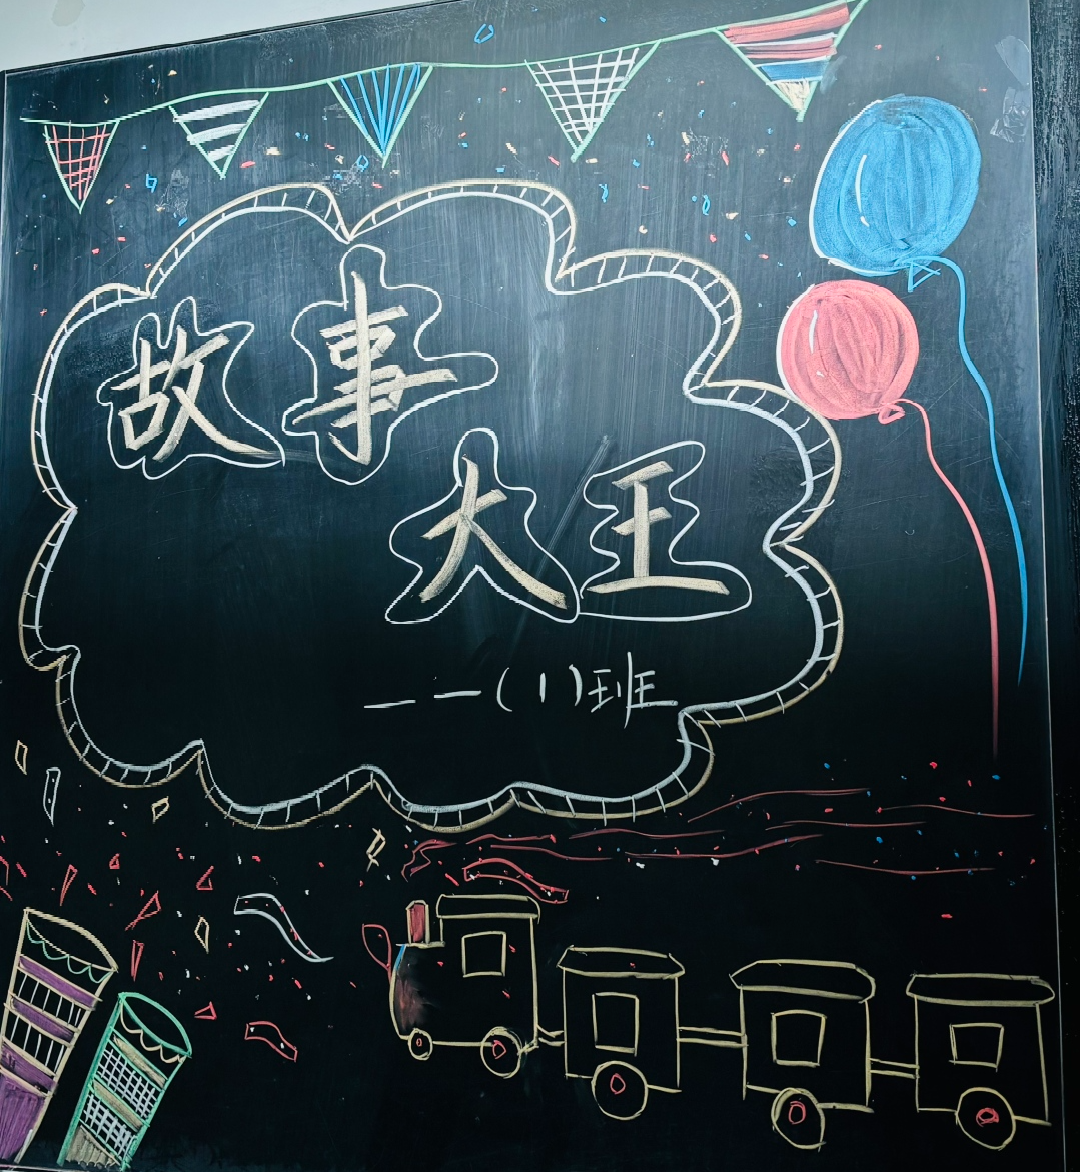 故事
大王
——一(1)班